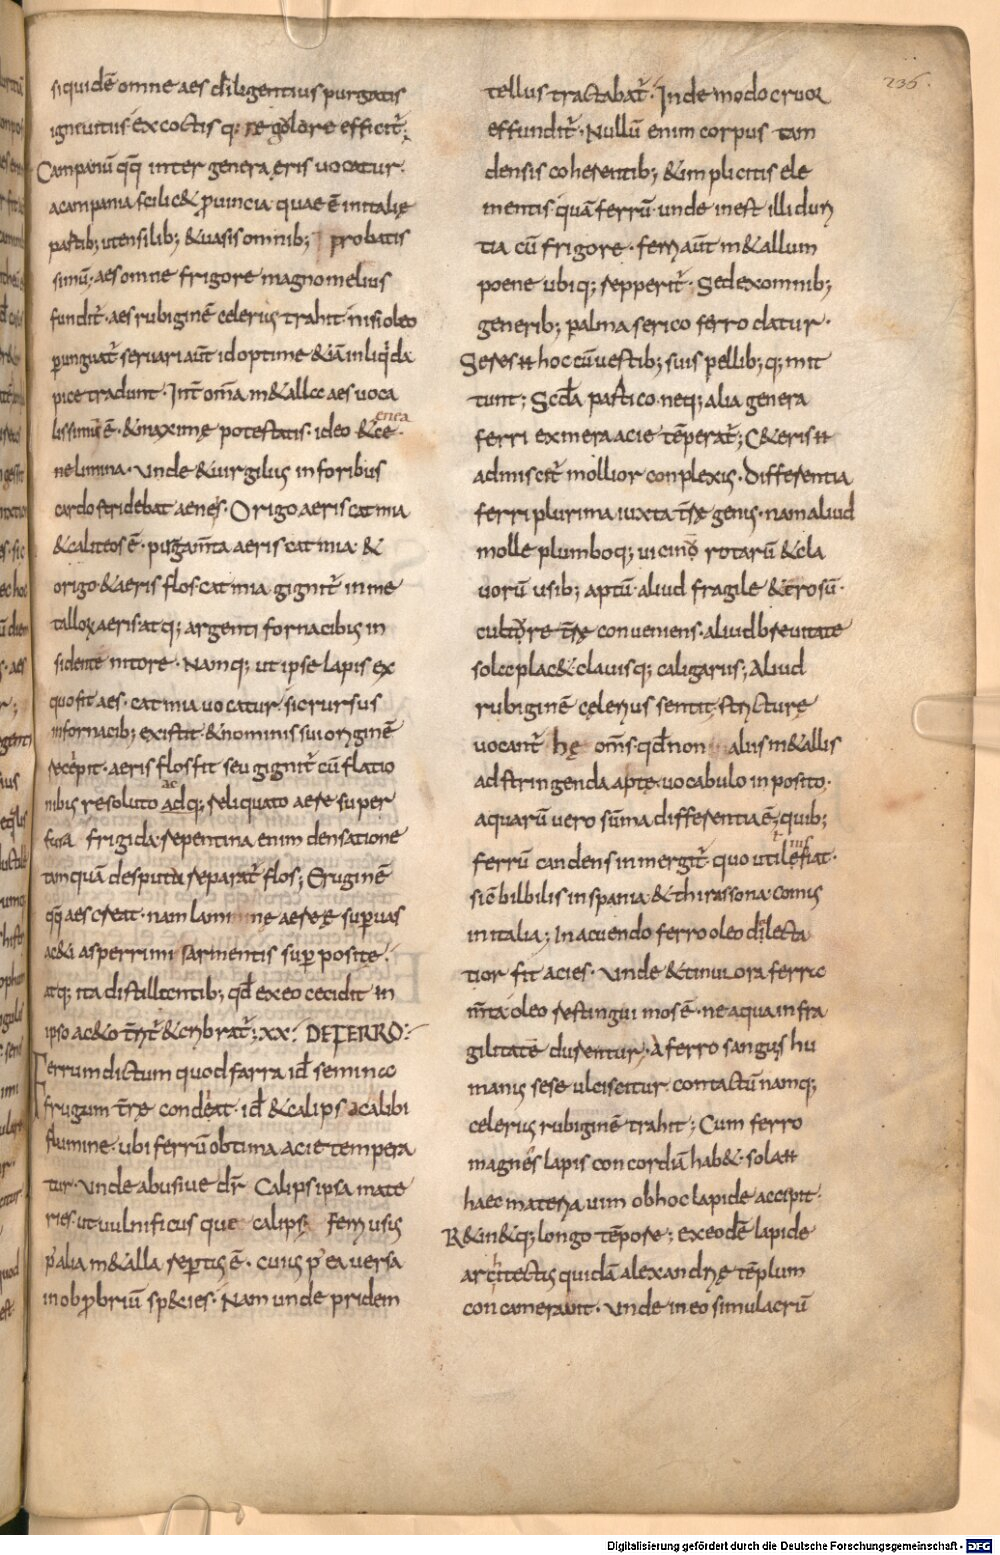 siquidē omne aes diligentius purgatis
igne uitiis excoctisq; regolare efficit̄;
Campanū qq̄ inter genera eris uocatur.
a campania scilic& p̄uincia quae ē in italię
partib; utensilib; & uasis omnib; probatis
simū; aes omne frigore magno melius
fundit̄. aes rubiginē celerius trahit. nisi oleo
perunguat̄ seruari aūt id optime & iā in liq̇da
pice tradunt. Int̄ om̄a m&alla aes uoca
lissimū ē. & maximę potestatis. ideo & ęrea
ne limina. unde & uirgilius in foribus
cardo stridebat aenęs. Origo aeris catmia
& caliteos ē. purgam̄ta aeris catmia. &
origo & aeris flos catmia gignit̄ in me
talloꝝ aeris. atq; argenti fornacibus in
sidente nitore. Namq; ut ipse lapis ex
quo fit aes. catmia uocatur. sic rursus
in fornacib; existit. & nominis sui originē
recępit. aeris flos fit seu gignit̄ cū flatio
nibus resoluto adq; reliquato aere super
fusa frigida. repentina enim densatione
tamquā desputa separat̄ flos; Eruginē
qq̄ aes creat. nam laminę aereę sup uas
ac&i asperrimi sarmentis sup positę.
atq; ita distillantib; qd̄ ex eo cecidit in
ipso ac&o t̄rit̄ & cribrat̄; xx. DE FERRO:
Ferrum dictum quod farra id̄ semina
frugum t̄rę condeat. id̄ & calips a calibi
flumine. ubi ferrū obtima acie tempera
tur. unde abusiue dr̄ Calips ipsa mate
ries. ut uulnificus que calips. Ferri usus
p̄ alia m&alla repertus ē. cuius p̄ ea uersa
in obp̄brium sp&ies. Nam unde pridem
tellus tractabat̄. Inde modo cruor
effundit̄. Nullū enim corpus tam
densis coherentib; & implicitis ele
mentis quā ferrū. unde inest illi duri
tia cū frigore. ferri aūt m&allum
poene ubiq; repperit̄. Sed ex omnib;
generib; palma serico ferro datur.
Seres hoc cū uestib; suis pellib;q; mit
tunt; Scd̄a partico. neq; alia genera
ferri ex mera acie tēperat̄; C&eris
admiscit̄ mollior conplexus. Differentia
ferri plurima iuxta t̄rę genus. nam aliud
molle plumboq; uicino rotarū & cla
uorū usib; aptū. aliud fragile & ęrosū.
culture t̄rę conueniens. aliud breuitate
sola plac& clauisq; caligariis; Aliud
rubiginē cęlerius sentit. stricturę
uocant̄ hę om̄s. qd̄ non aliis m&allis
ad stringenda aptę. uocabulo inposito.
aquarū uero sūma differentia ē; quib;
ferrū candens inmergit̄. quo utilefiat.
sic bilbilis in spania. & thirassona. comus
in italia; In acuendo ferro oleo dilecta
tior fit acies. unde & tinuiora ferra
m̄ta oleo restingui mos ē. ne aqua in fra
gilitatē durentur; A ferro sangus hu
manus sese ulciscitur. contactū namq;
celerius rubiginē trahit; Cum ferro
magnes lapis concordiā hab&. sola
haec materia uim ob hoc lapide accipit.
R&in&q; longo tēpore; ex eodē lapide
architectus quidā alexandrię tēplum
concamerauit. unde in eo simulacrū
236.
Digitalisierung gefördert durch die Deutsche Forschungsgemeinschaft - DFG